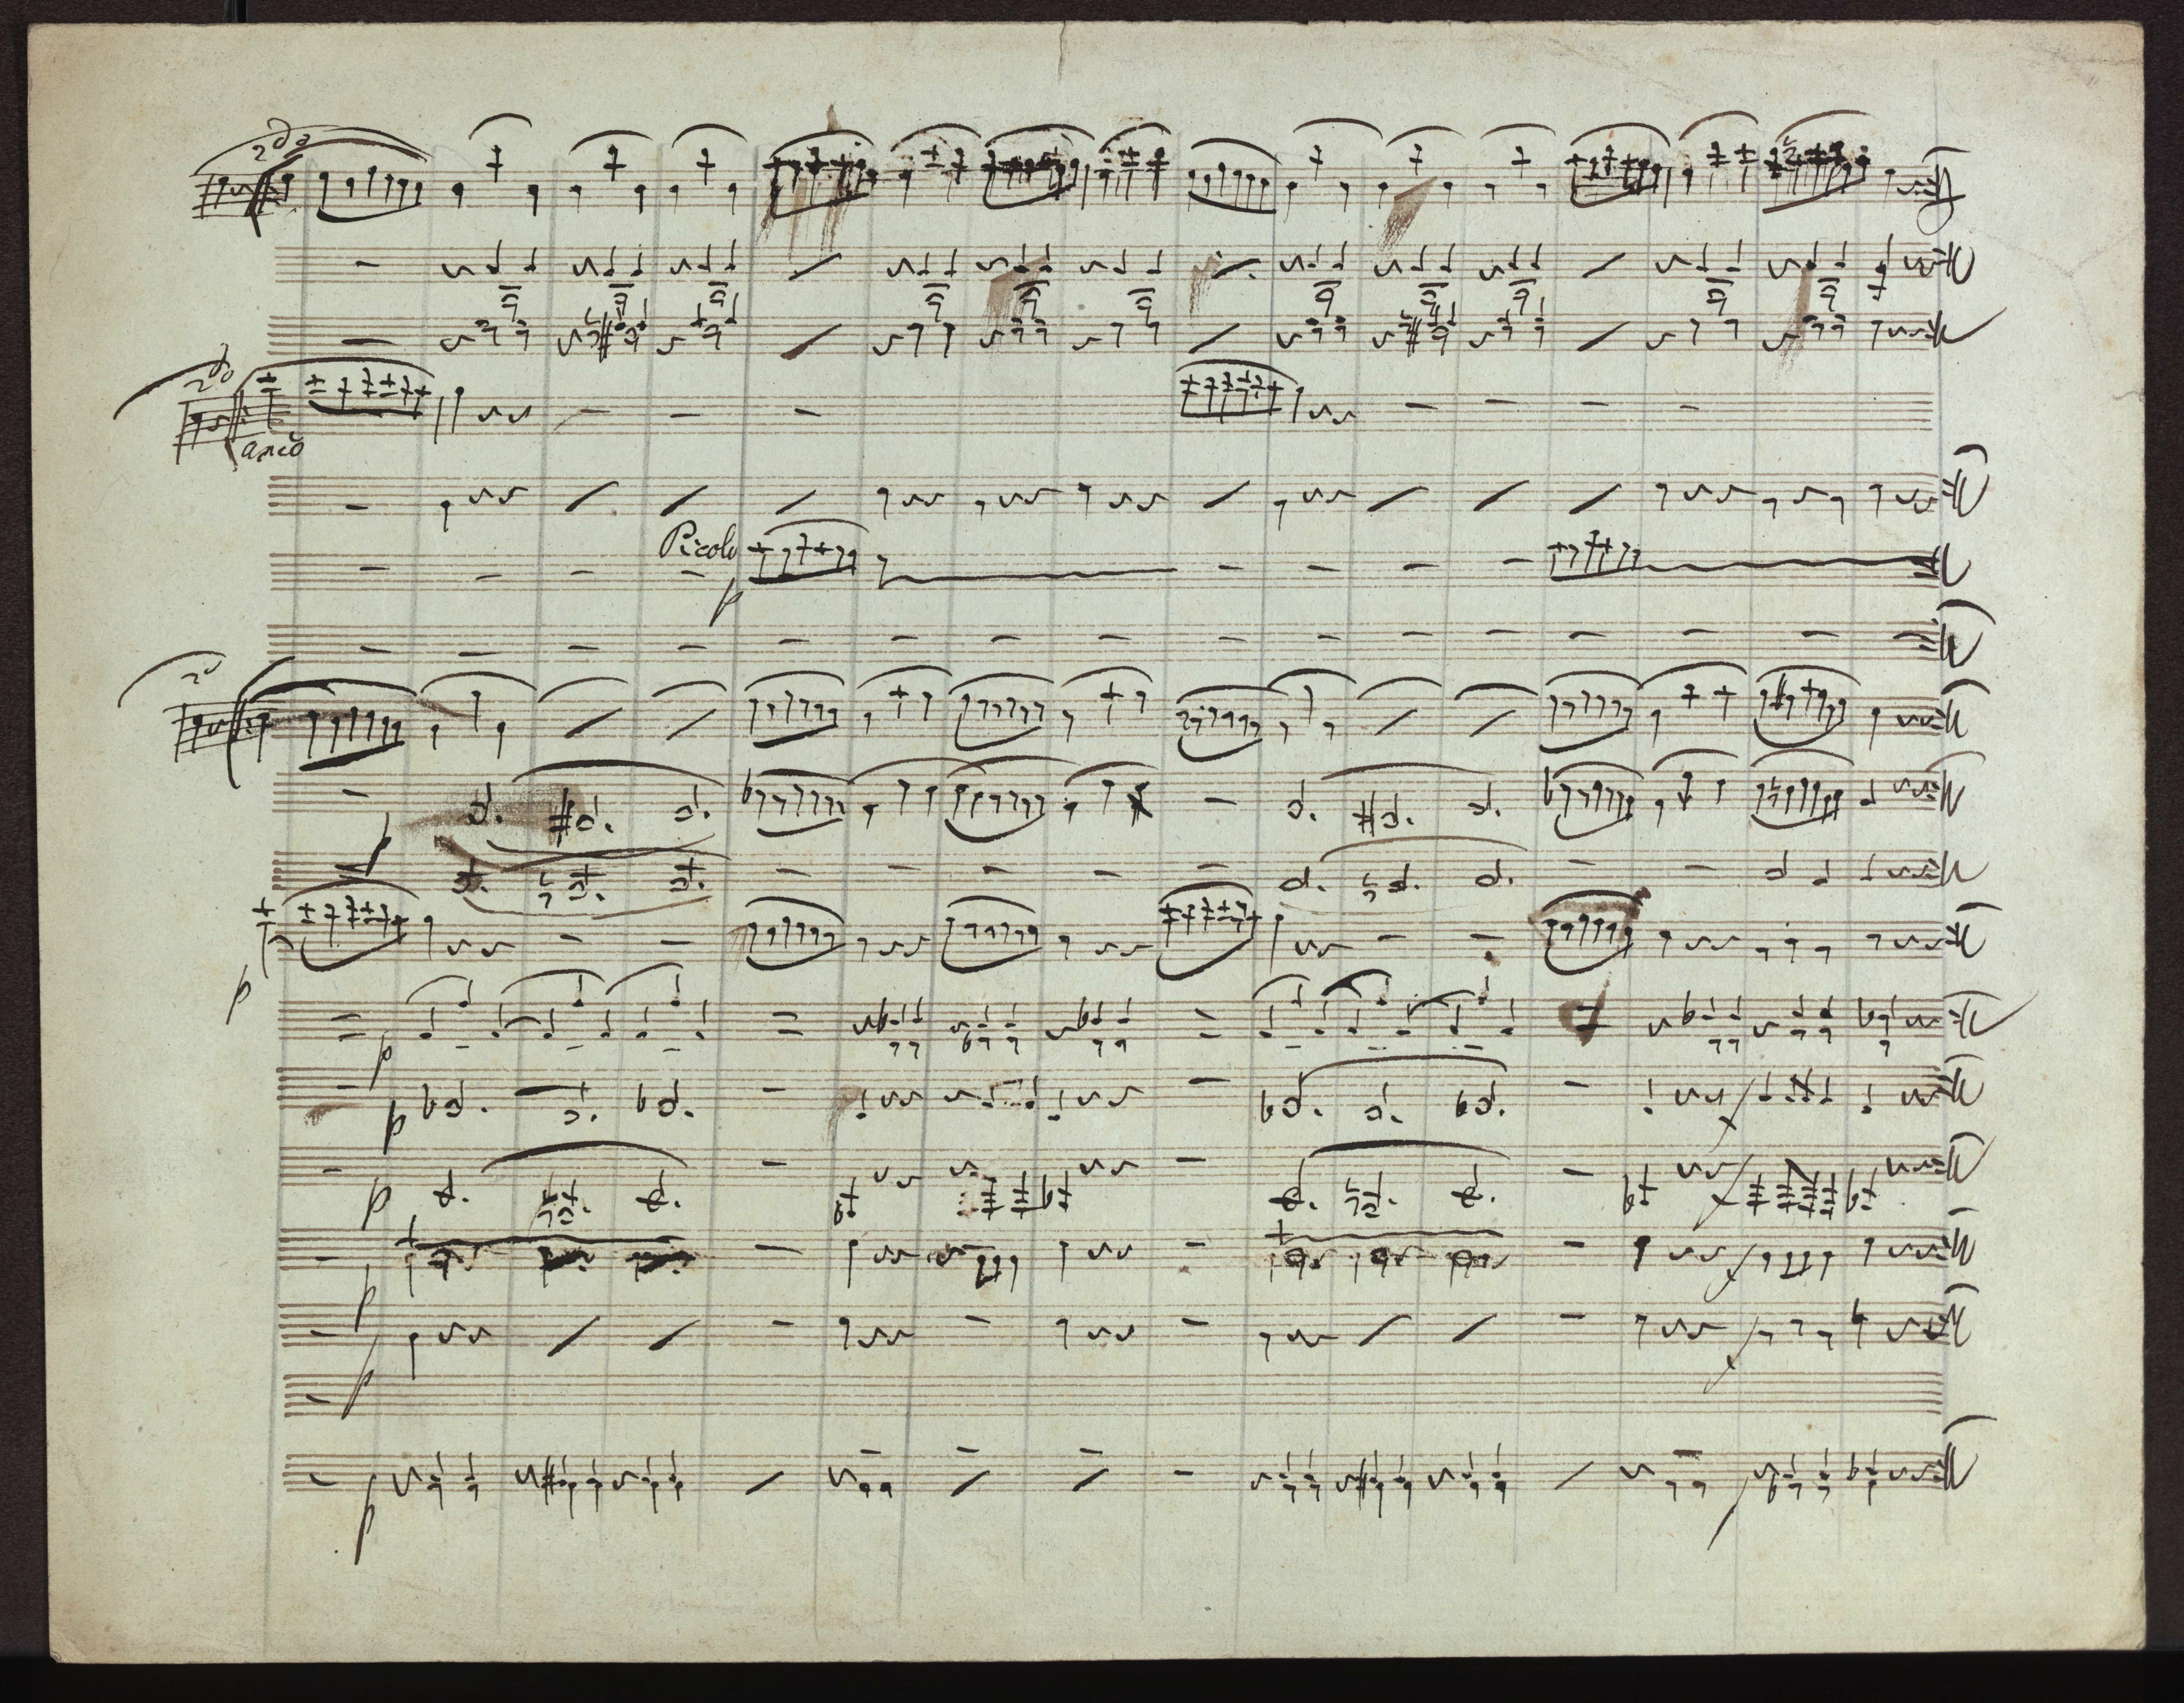 2da
2do
arco
Picolo
p
2o
p
p
p
p
p
p
p
p
p